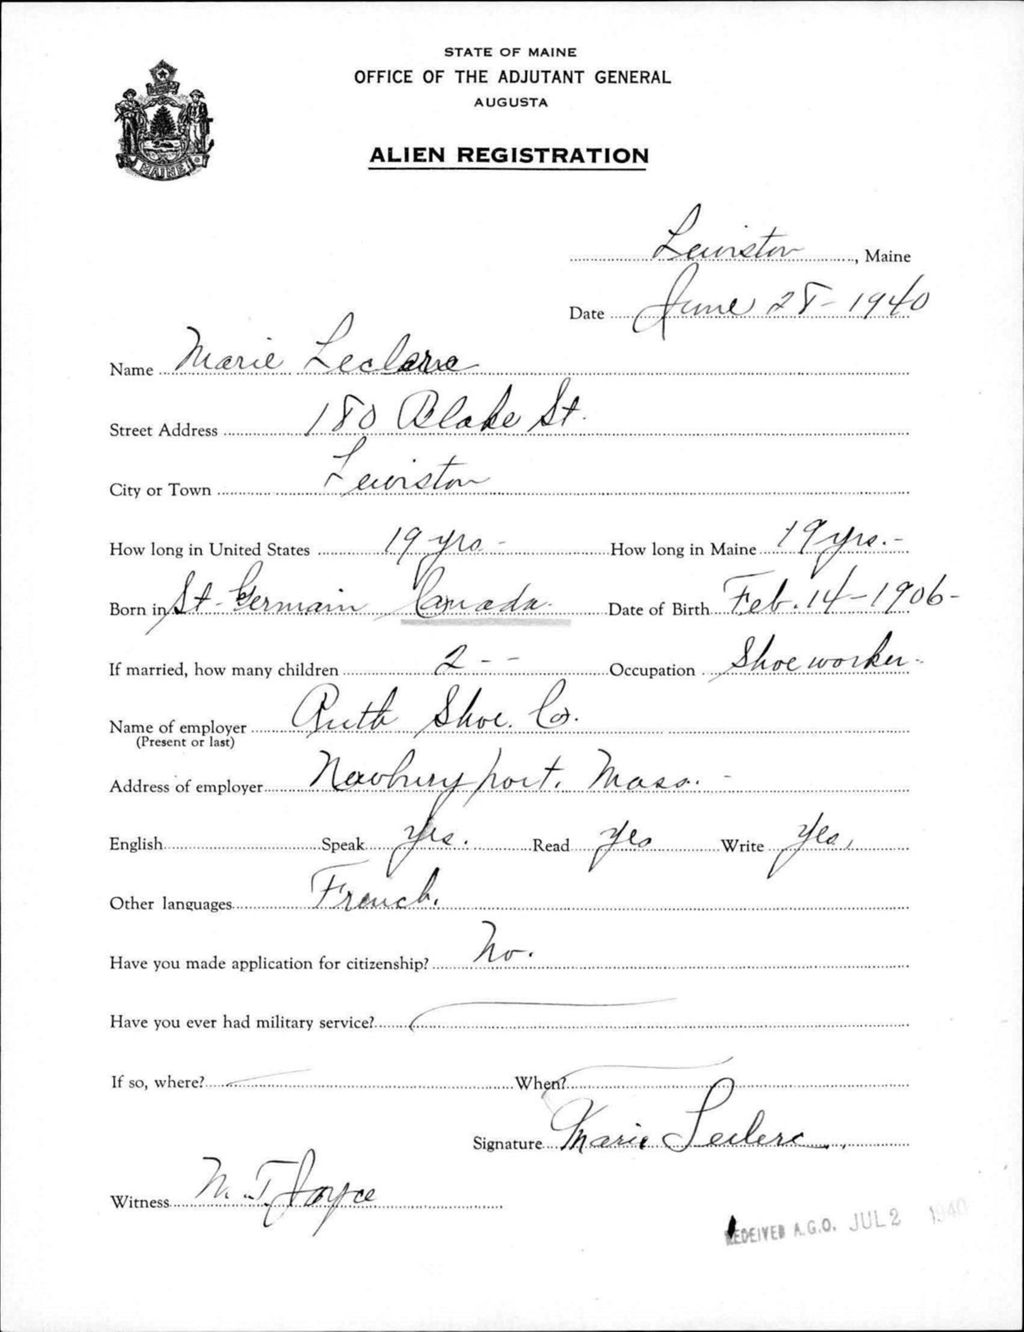 STATE OF MAINE
OFFICE OF THE ADJUTANT GENERAL
AUGUSTA
ALIEN REGISTRATION
MAINE
Lewiston, Maine
Date June 28-1940
Name Marie
Street Address 180 Blake St.
City or Town Lewiston
How long in United States 19 yrs - How long in Maine 19 yrs. -
Born in St-Germain Canada. Date of Birth Feb. 14-1906-
If married, how many children 2 - - Occupation Shoe worker-
Name of employer Ruth Shoe. Co.
(Present or last)
Address of employer Newburyport, Mass. -
English Speak yes. Read yes Write Yes,
Other languages French.
Have you made application for citizenship? No.
Have you ever had military service?
If so, where? When?
Signature Marie Leclerc
Witness N. T. Joyce
RECEIVED A.G.O. JUL 2 1940